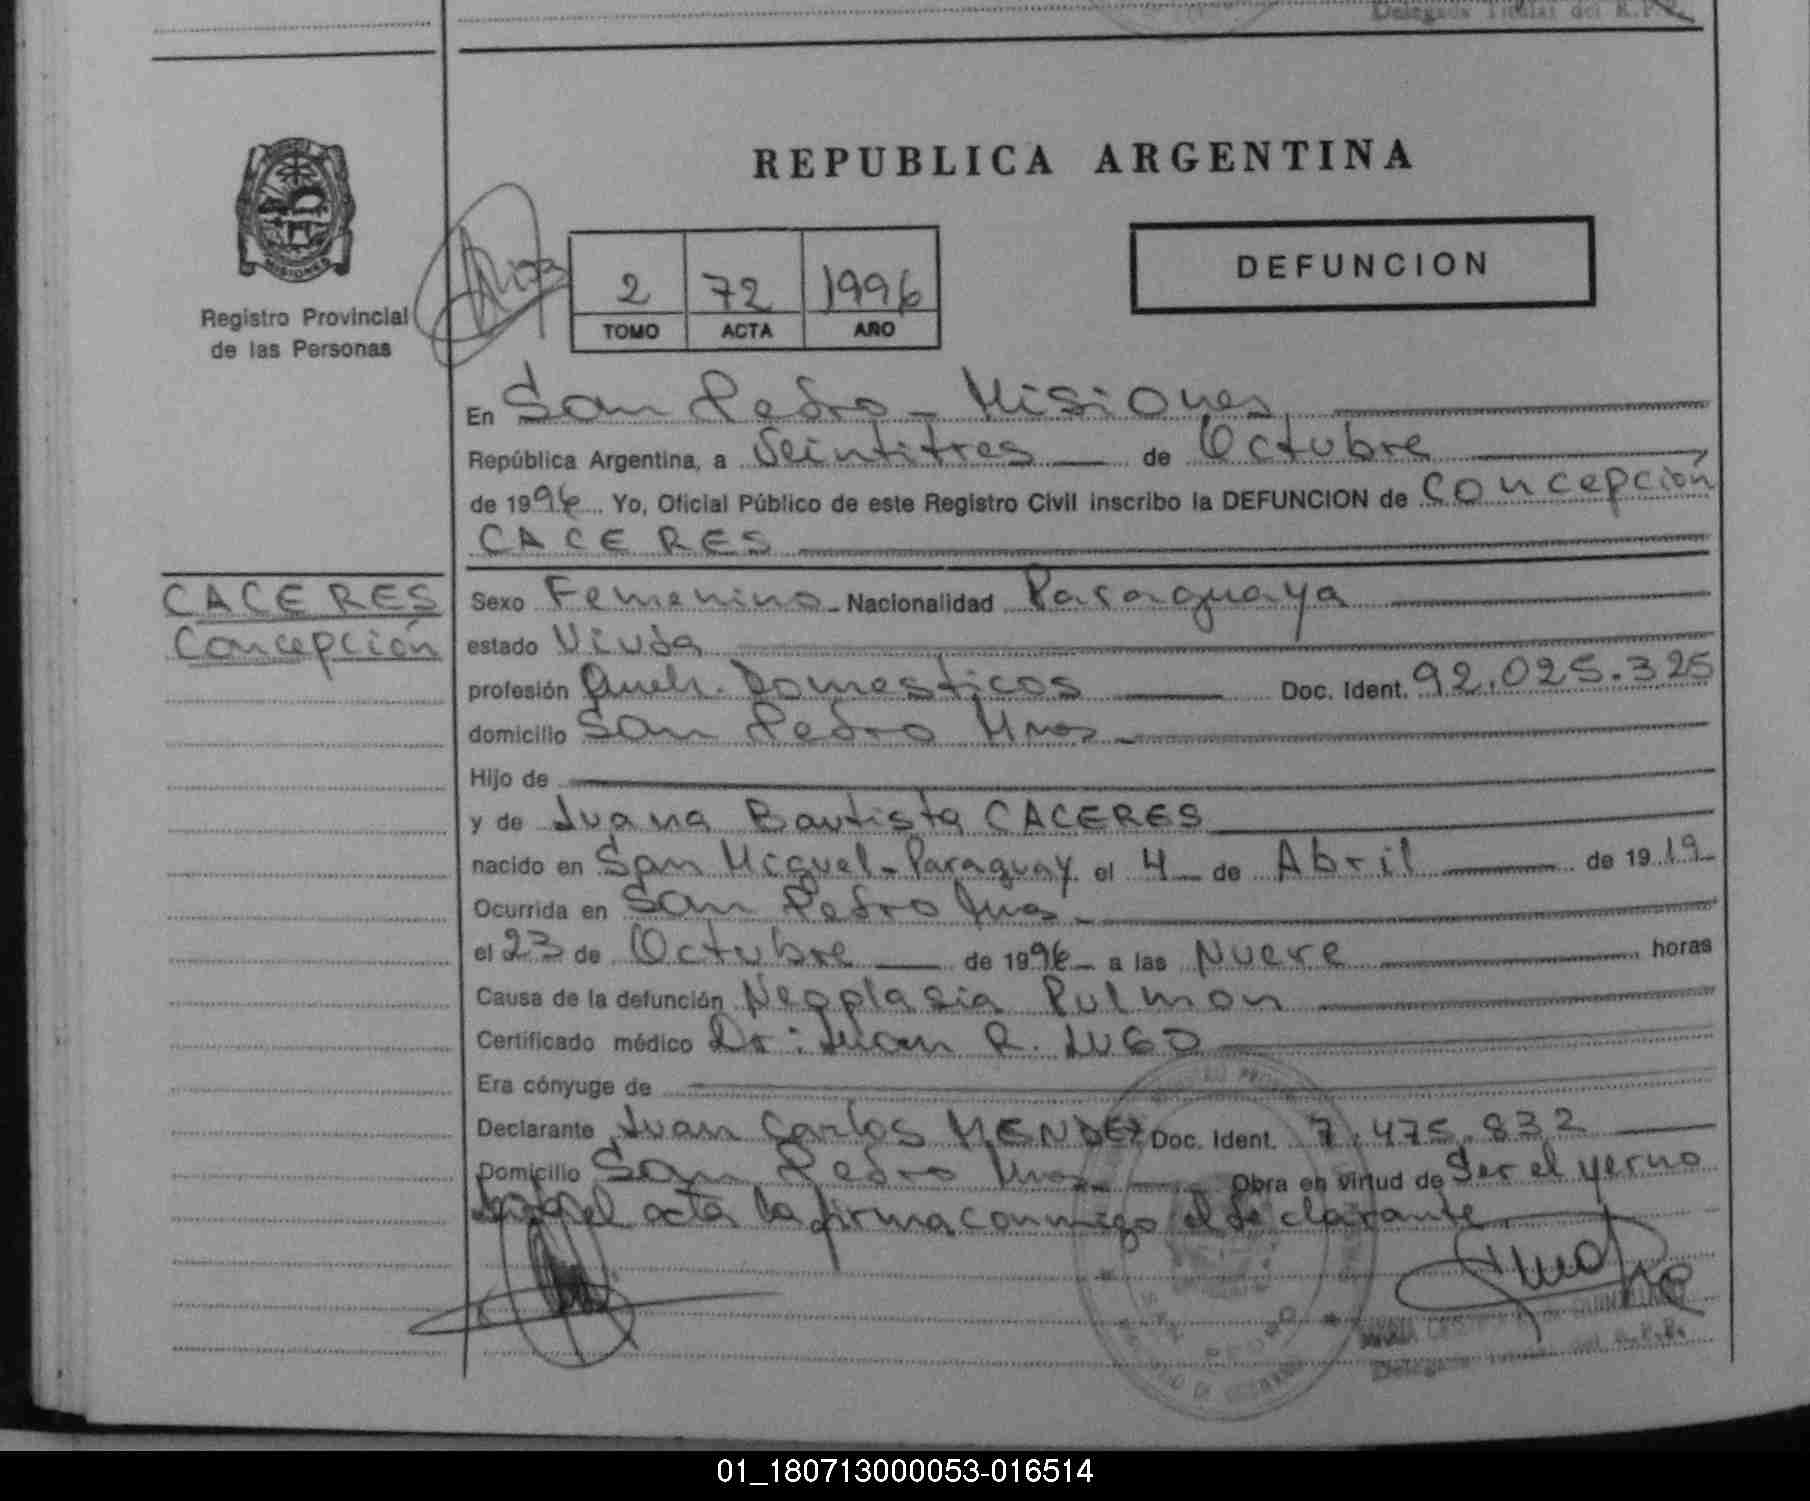 Delegada Titular del R.P.P.
REPUBLICA ARGENTINA
MISIONES
Registro Provincial
de las Personas
2 72 1996
TOMO ACTA AÑO
DEFUNCION
En San Pedro - Misiones
República Argentina, a Veintitres de Octubre
de 1996 Yo, Oficial Público de este Registro Civil inscribo la DEFUNCION de Concepción
CACERES
CACERES
Concepción
Sexo Femenino - Nacionalidad Paraguaya
estado Viuda
profesión Queh. Domesticos Doc. Ident. 92.025.325
domicilio San Pedro Mnes -
Hijo de
y de Juana Bautista CACERES
nacido en San Miguel - Paraguay el 4 de Abril de 1919
Ocurrida en San Pedro Mnes -
el 23 de Octubre de 1996 a las Nueve horas
Causa de la defunción Neoplasia Pulmon
Certificado médico Dr: Juan R. LUGO
Era cónyuge de
Declarante Juan Carlos MENDEZ Doc. Ident. 7.475.832
Domicilio San Pedro Mnes - Obra en virtud de Ser el yerno
el acta la firma conmigo el declarante
SAN PEDRO
Delegada Titular del R.P.P.
01_180713000053-016514